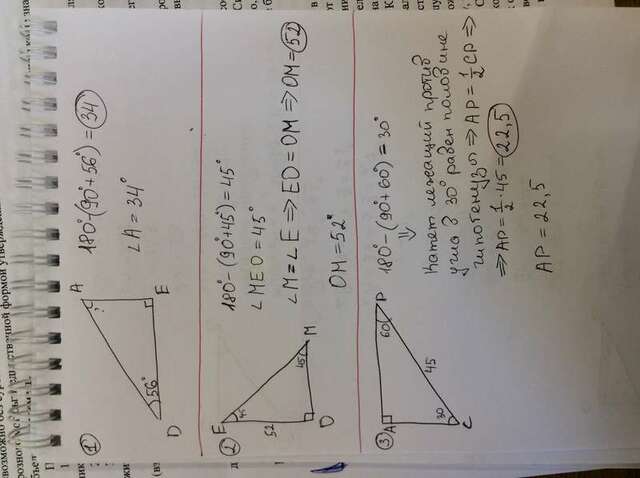 ①
A
?
56°
D
E
180°-(90°+56°) = 34°
∠A = 34°
②
E
45
52
45
M
O
180°-(90°+45°) = 45°
∠MEO = 45°
∠M = ∠E ⇒ EO = OM ⇒ OM = 52
OM = 52°
③
A
60
P
45
30
C
180°-(90°+60°) = 30°
Катет лежащий против
угла в 30° равен половине
гипотенузы ⇒ AP = 1/2 CP ⇒
⇒ AP = 1/2 · 45 = 22,5
AP = 22,5